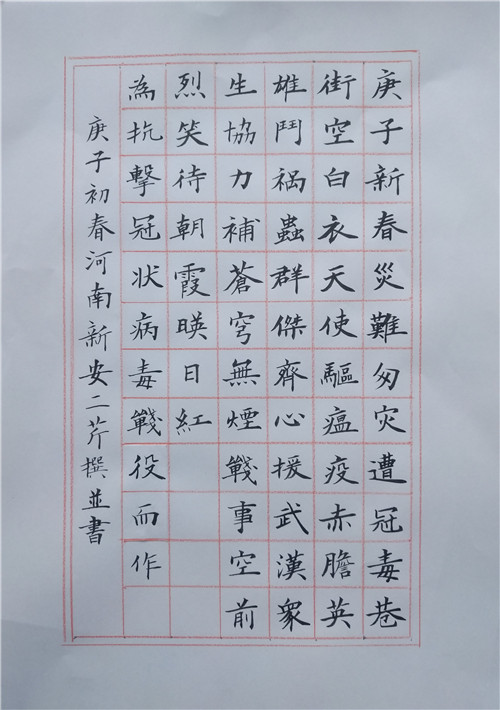 庚子新春災難匆灾遭冠毒巷
街空白衣天使驅瘟疫赤膽英
雄鬥禍蟲群傑齊心援武漢衆
生協力補蒼穹無煙戰事空前
烈笑待朝霞暎日紅
為抗擊冠状病毒戰役而作
庚子初春河南新安二芹撰並書